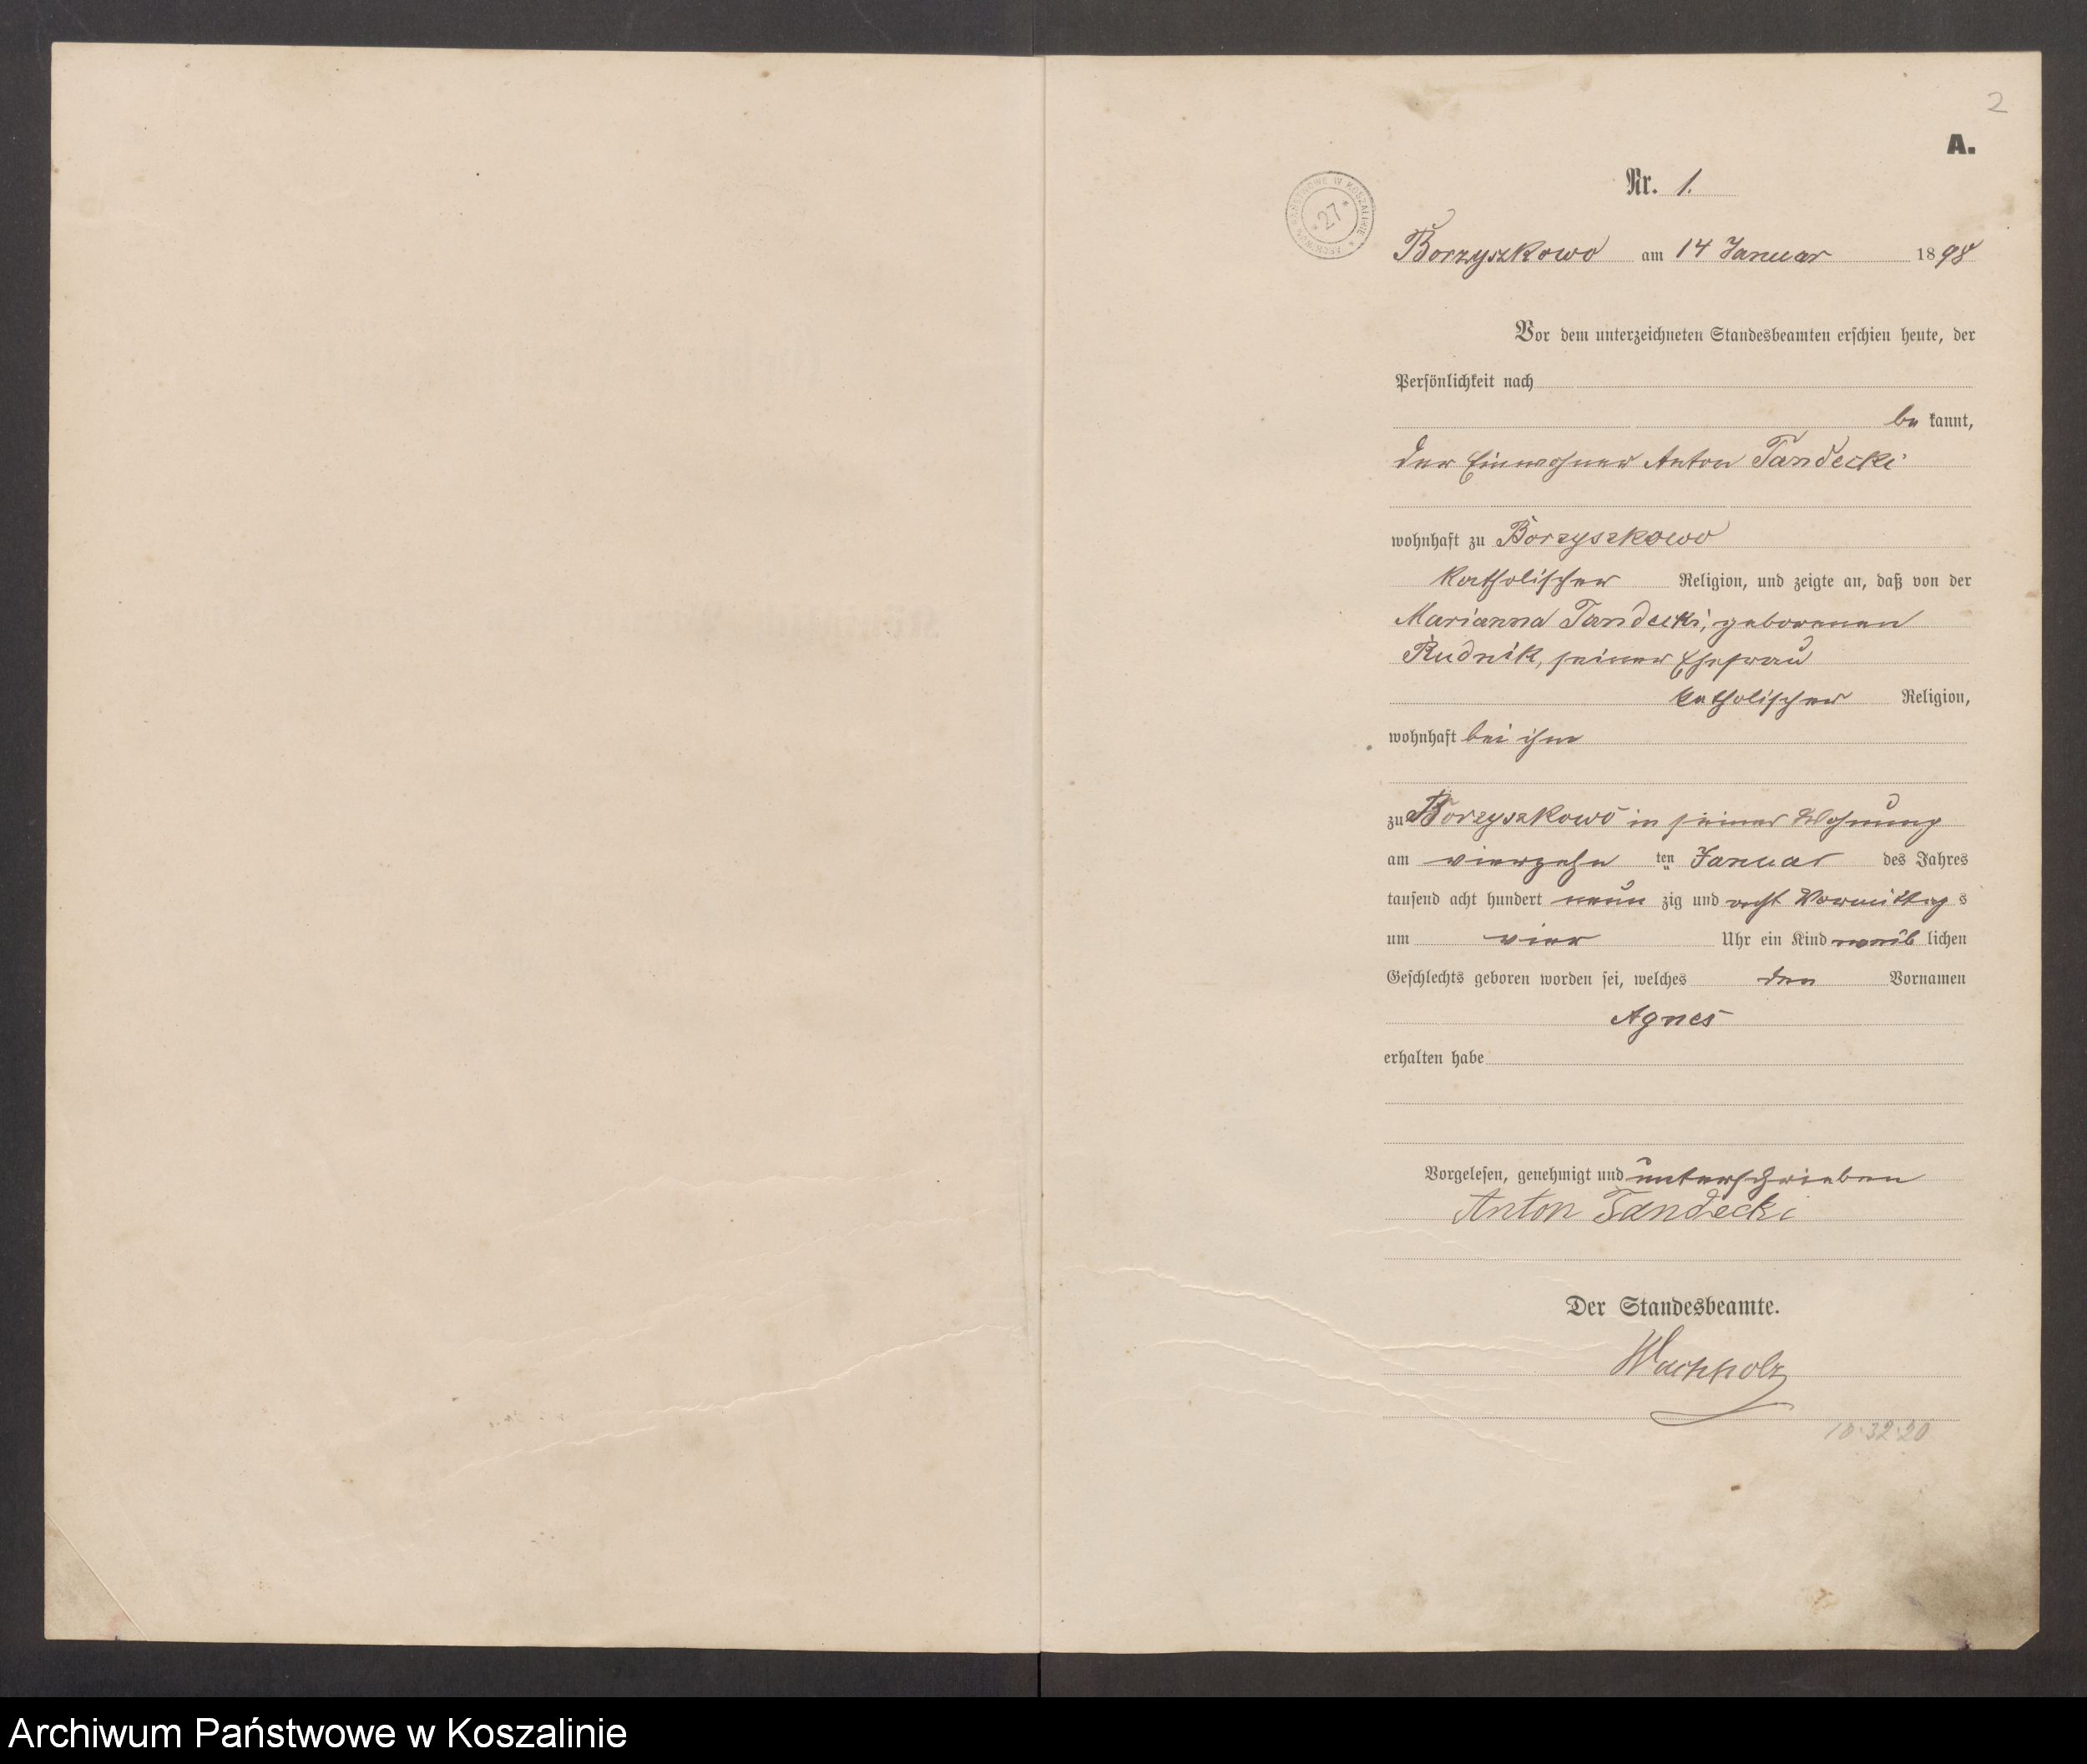 2
A.
Nr. 1.
ARCHIWUM PAŃSTWOWE W KOSZALINIE * 27 *
Borzyszkowo am 14 Januar 1898
Vor dem unterzeichneten Standesbeamten erschien heute, der
Persönlichkeit nach
be kannt,
der Einwohner Anton Tandecki
wohnhaft zu Borzyszkowo
katholischer Religion, und zeigte an, daß von der
Marianna Tandecki, geborenen
Rudnik, seiner Ehefrau
katholischer Religion,
wohnhaft bei ihm
zu Borzyszkowo in seiner Wohnung
am vierzehn ten Januar des Jahres
tausend acht hundert neun zig und acht Vormittag s
um vier Uhr ein Kind weib lichen
Geschlechts geboren worden sei, welches den Vornamen
Agnes
erhalten habe
Vorgelesen, genehmigt und unterschrieben
Anton Tandecki
Der Standesbeamte.
Wachholz
10·32·20
Archiwum Państwowe w Koszalinie